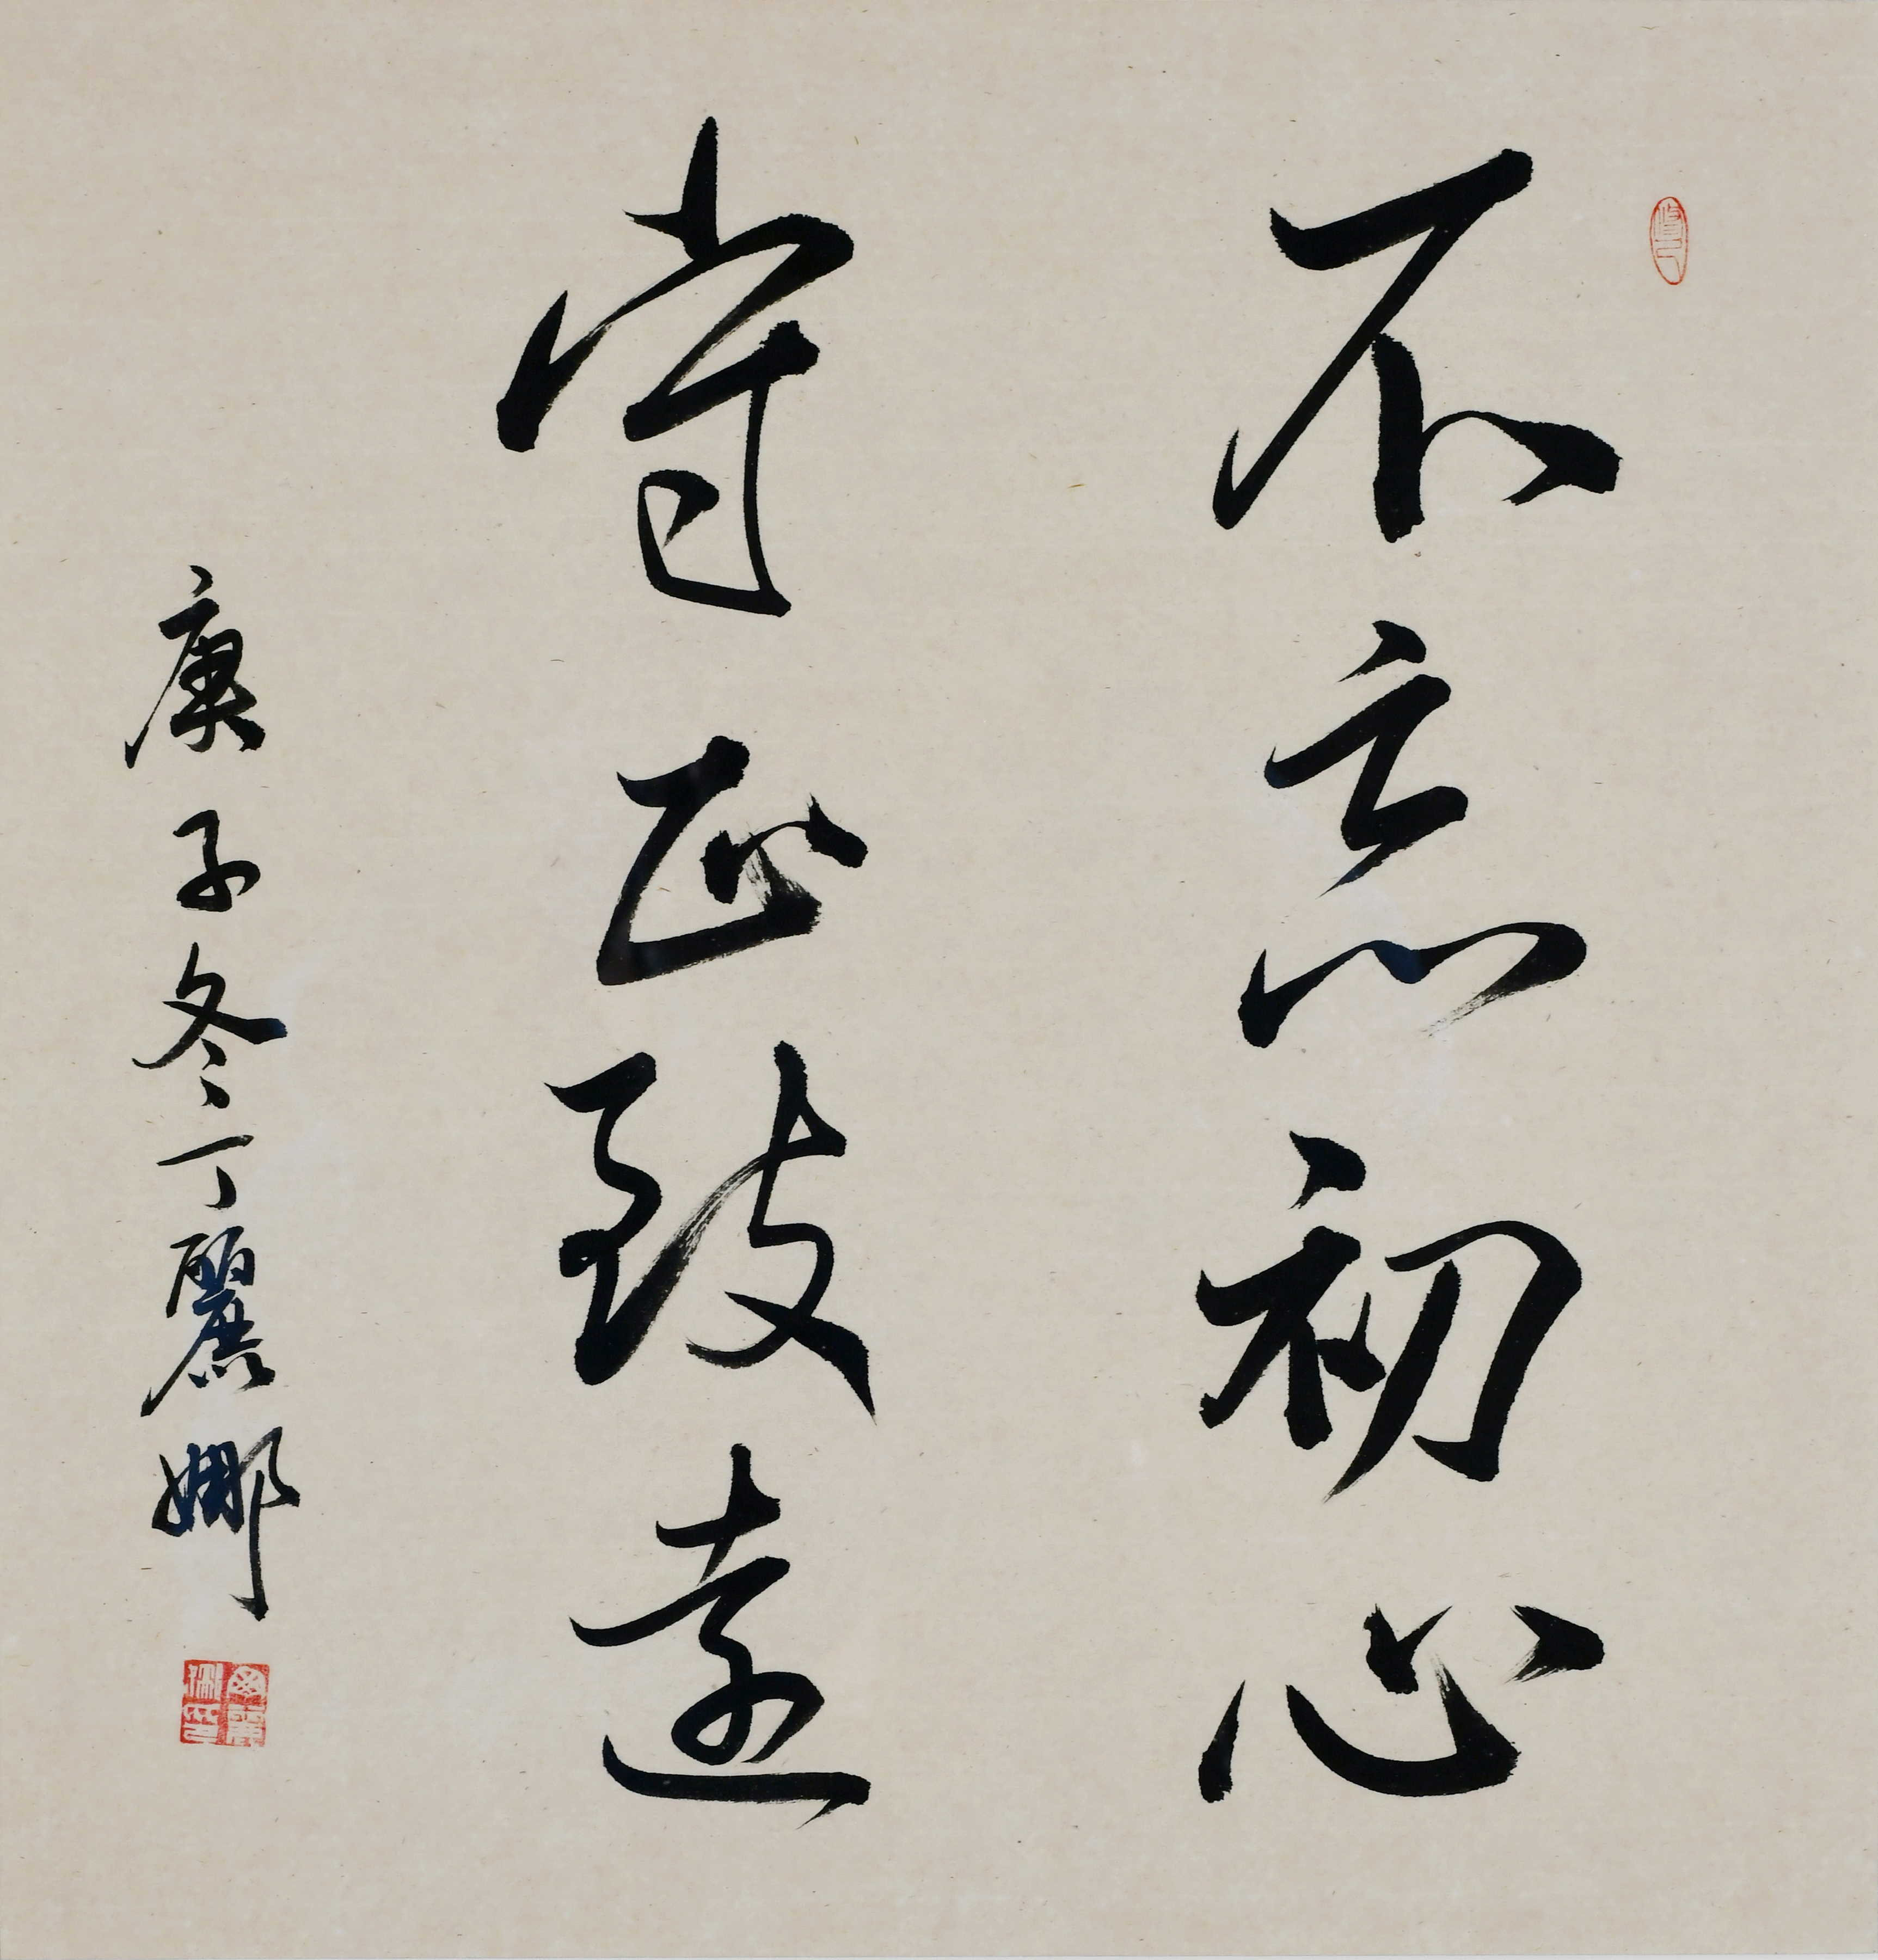 不忘初心
守正致遠
庚子冬丁麗娜